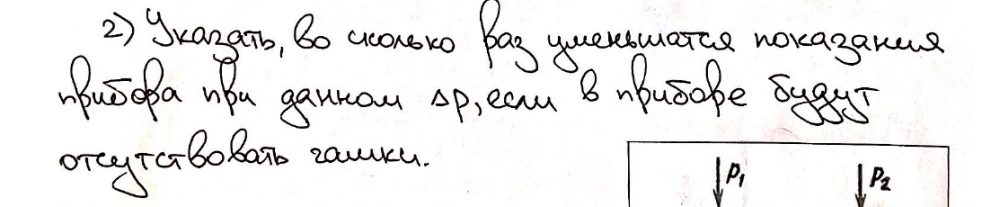 2) Указать, во сколько раз уменьшатся показания
прибора при данном Δp, если в приборе будут
отсутствовать чашки.
P₁ P₂